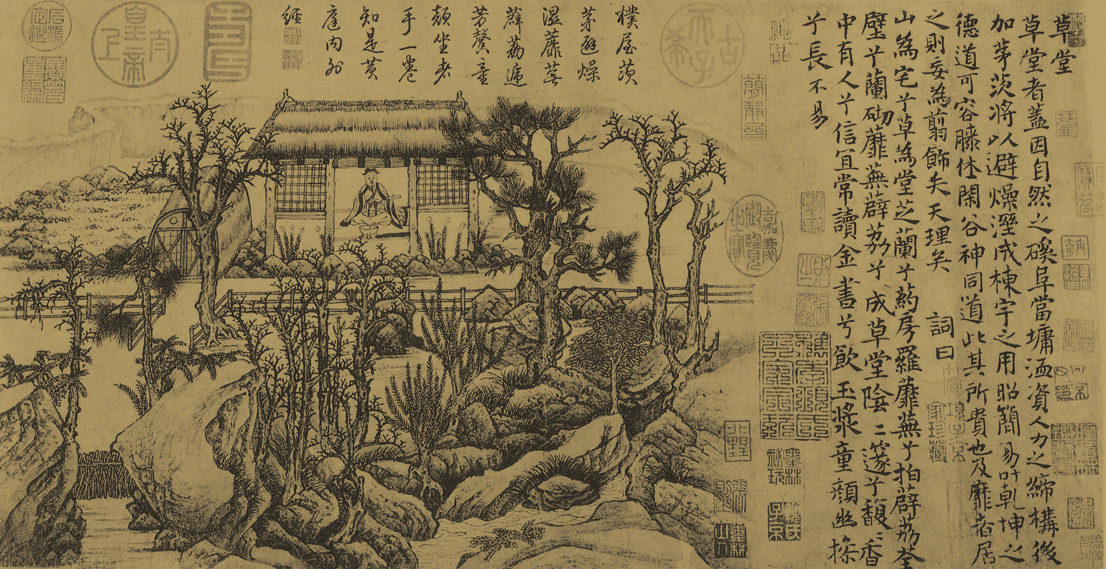 草堂
草堂者蓋因自然之磎阜當墉洫資人力之締構後
加茅茨將以避燥溼成棟宇之用昭簡易叶乾坤之
德道可容膝休閑谷神同道此其所貴也及靡者居
之則妄為翦飾失天理矣 詞曰
山為宅兮草為堂芝蘭兮葯房羅蘼蕪兮拍薜荔荃
壁兮蘭砌蘼蕪薜荔兮成草堂陰〻邃兮馥〻香
中有人兮信宜常讀金書兮飲玉漿童顏幽操
兮長不易
簡靜齋
嘉慶御覽之寶
古稀天子
樸屋茨
茅避燥
湿蘼蕪
薜荔遞
芳馨童
顏坐者
手一卷
知是黃
庭内外
經